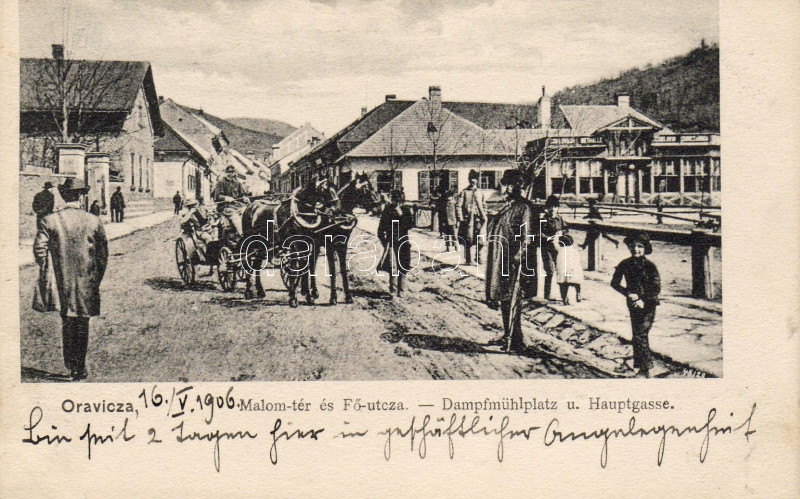 darabanth
Oravicza, 16./V. 1906. Malom-tér és Fő-utcza. — Dampfmühlplatz u. Hauptgasse.
bin seit 2 Tagen hier in geschäftlicher Angelegenheit